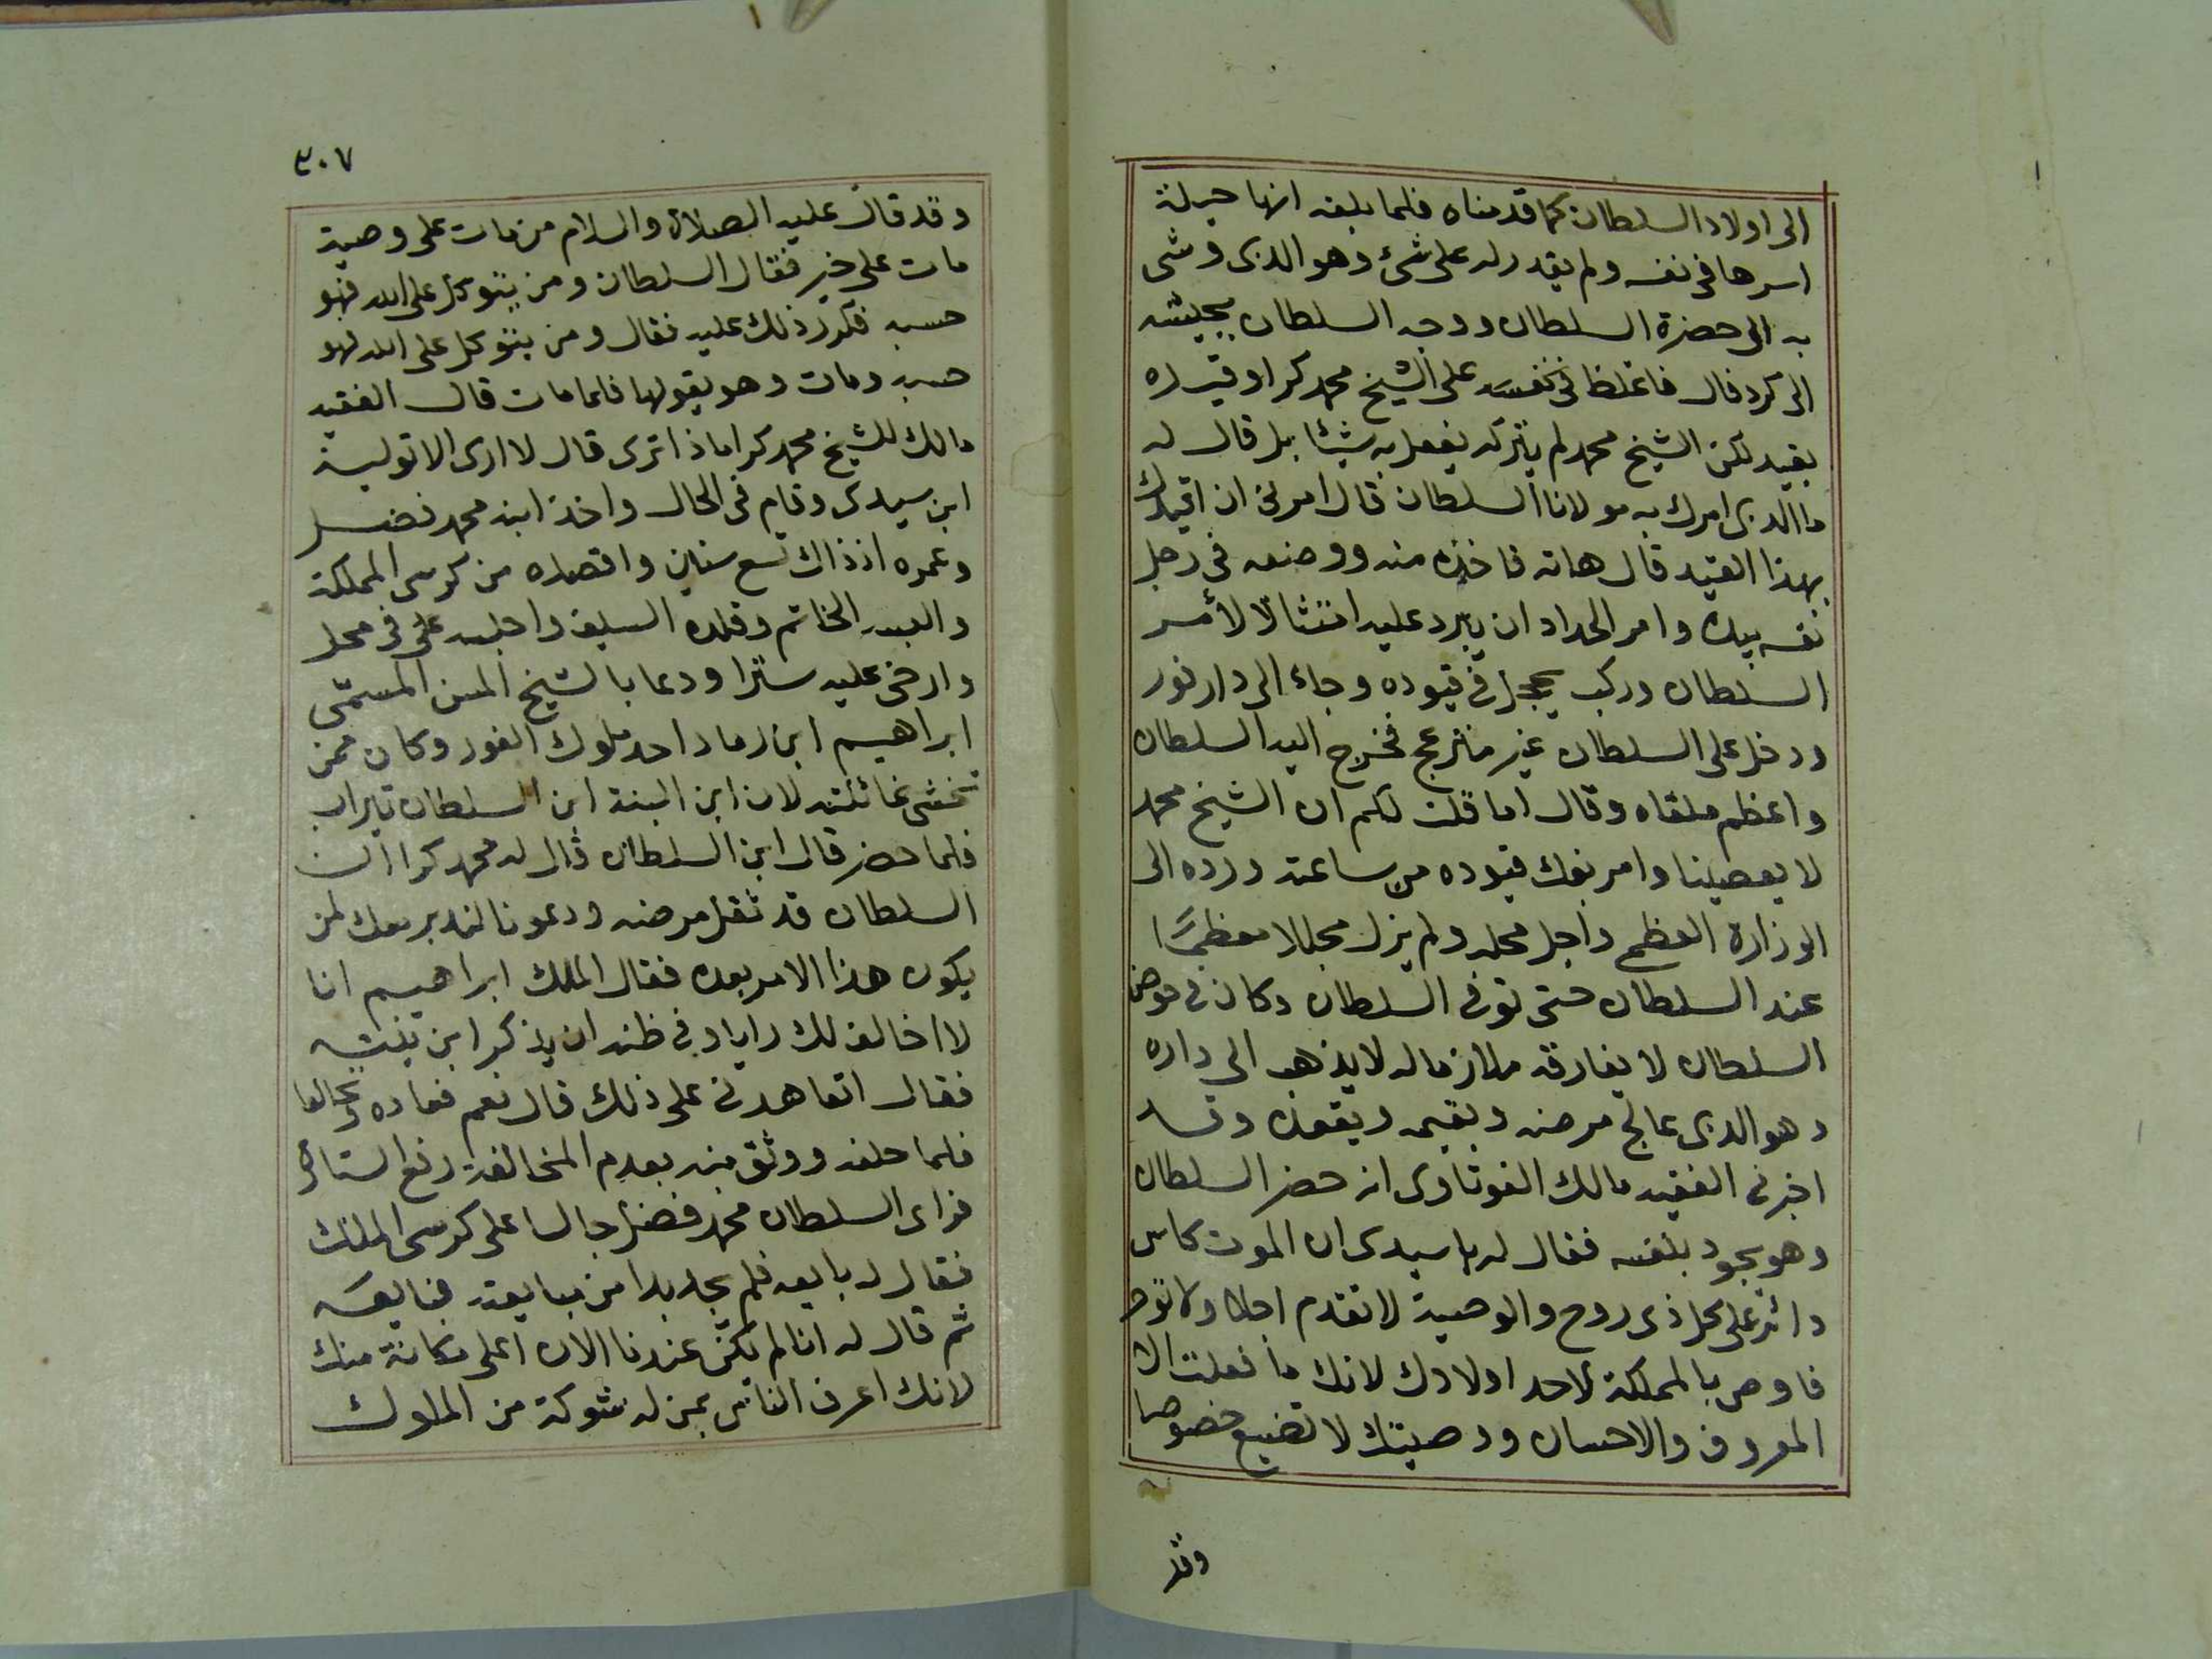 الى اولاد السلطان كما قدمناه فلما بلغه انها حيلة
اسرها فى نفسه ولم يقدر له على شئ وهو الذى وشى
به الى حضرة السلطان ووجه السلطان بجيشه
الى كردفال فاغلظ فى نفسه على الشيخ محمد كرا وقيده
بقيد لكن الشيخ محمد لم يتركه يفعل به شيئا بل قال له
ما الذى امرك به مولانا السلطان قال امرنى ان اقيدك
بهذا القيد قال هاته فاخذه منه ووضعه فى رجل
نفسه بيده وامر الحداد ان يبرد عليه امتثالا لأمر
السلطان وركب يحجل فى قيوده وجاء الى دارفور
ودخل على السلطان غير منزعج فخرج اليه السلطان
واعظم ملقاه وقال اما قلت لكم ان الشيخ محمد
لا يعصينا وامر بفك قيوده من ساعته ورده الى
الوزارة العظمى واجل محله ولم يزل مجللا معظما
عند السلطان حتى توفى السلطان وكان فى مرض
السلطان لا يفارقه ملازما له لا يذهب الى داره
وهو الذى عالج مرضه ويقيمه ويقعده وقد
اخبرنى الفقيه مالك الفوتاوى انه حضر السلطان
وهو يجود بنفسه فقال له يا سيدى ان الموت كاس
دائر على كل ذى روح والوصية لا تقدم اجلا ولا تؤخر
فاوص بالمملكة لاحد اولادك لانك ما فعلت الا
المعروف والاحسان ووصيتك لا تضيع خصوصا
وقد
٣٠٧
وقد قال عليه الصلاة والسلام من مات على وصية
مات على خير فقال السلطان ومن يتوكل على الله فهو
حسبه فكرر ذلك عليه فقال ومن يتوكل على الله فهو
حسبه ومات وهو يقولها فلما مات قال الفقيه
مالك للشيخ محمد كرا ماذا ترى قال لا ارى الا تولية
ابن سيدى وقام فى الحال واخذ ابنه محمد فضل
وعمره اذ ذاك تسع سنين واقعده من كرسى المملكة
والبسه الخاتم وقلده السيف واجلسه على فى محل
وارخى عليه سترا ودعا بالشيخ المسن المسمى
ابراهيم ابن رماد احد ملوك الفور وكان ممن
تخشى غائلته لان ابن ابنته ابن السلطان تيراب
فلما حضر قال اين السلطان قال له محمد كرا ان
السلطان قد ثقل مرضه ودعونا لندبر معك لمن
يكون هذا الامر بعده فقال الملك ابراهيم انا
لا اخالف لك رايا وفى ظنه ان يذكر ابن بنته
فقال اتعاهدنى على ذلك قال نعم فعاهده وتحالفا
فلما حلف ووثق منه بعدم المخالفة رفع الستارة
فراى السلطان محمد فضل جالسا على كرسى الملك
فقال له بايعه فلم يجد بدا من مبايعته فبايعه
ثم قال له انا لم يكن عندنا الان اعلى مكانة منك
لانك اعرف الناس بمن له شوكة من الملوك